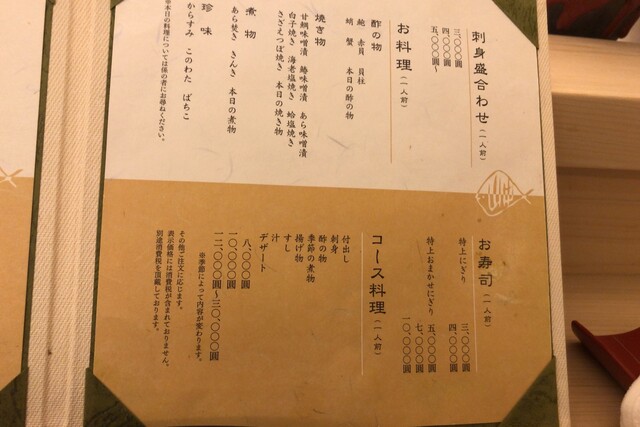 刺身盛合わせ（一人前）
三、〇〇〇圓
四、〇〇〇圓
五、〇〇〇圓〜
お料理（一人前）
酢の物
鮑　赤貝　貝柱
蛸　蟹　本日の酢の物
焼き物
甘鯛味噌漬　鰆味噌漬　あら味噌漬
白子焼き　海老塩焼き　蛤塩焼き
さざえつぼ焼き　本日の焼き物
煮物
あら焚き　きんき　本日の煮物
珍味
からすみ　このわた　ばちこ
※本日の料理については係の者にお尋ねください。
お寿司（一人前）
特上にぎり
三、〇〇〇圓
四、〇〇〇圓
特上おまかせにぎり
五、〇〇〇圓
七、〇〇〇圓
一〇、〇〇〇圓
コース料理（一人前）
付出し
刺身
酢の物
季節の煮物
揚げ物
すし
汁
デザート
八、〇〇〇圓
一〇、〇〇〇圓
一二、〇〇〇圓〜三〇、〇〇〇圓
※季節によって内容が変わります。
その他ご注文に応じます。
表示価格には消費税が含まれておりません。
別途消費税を頂戴しております。